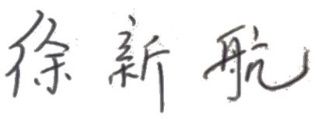 徐新航